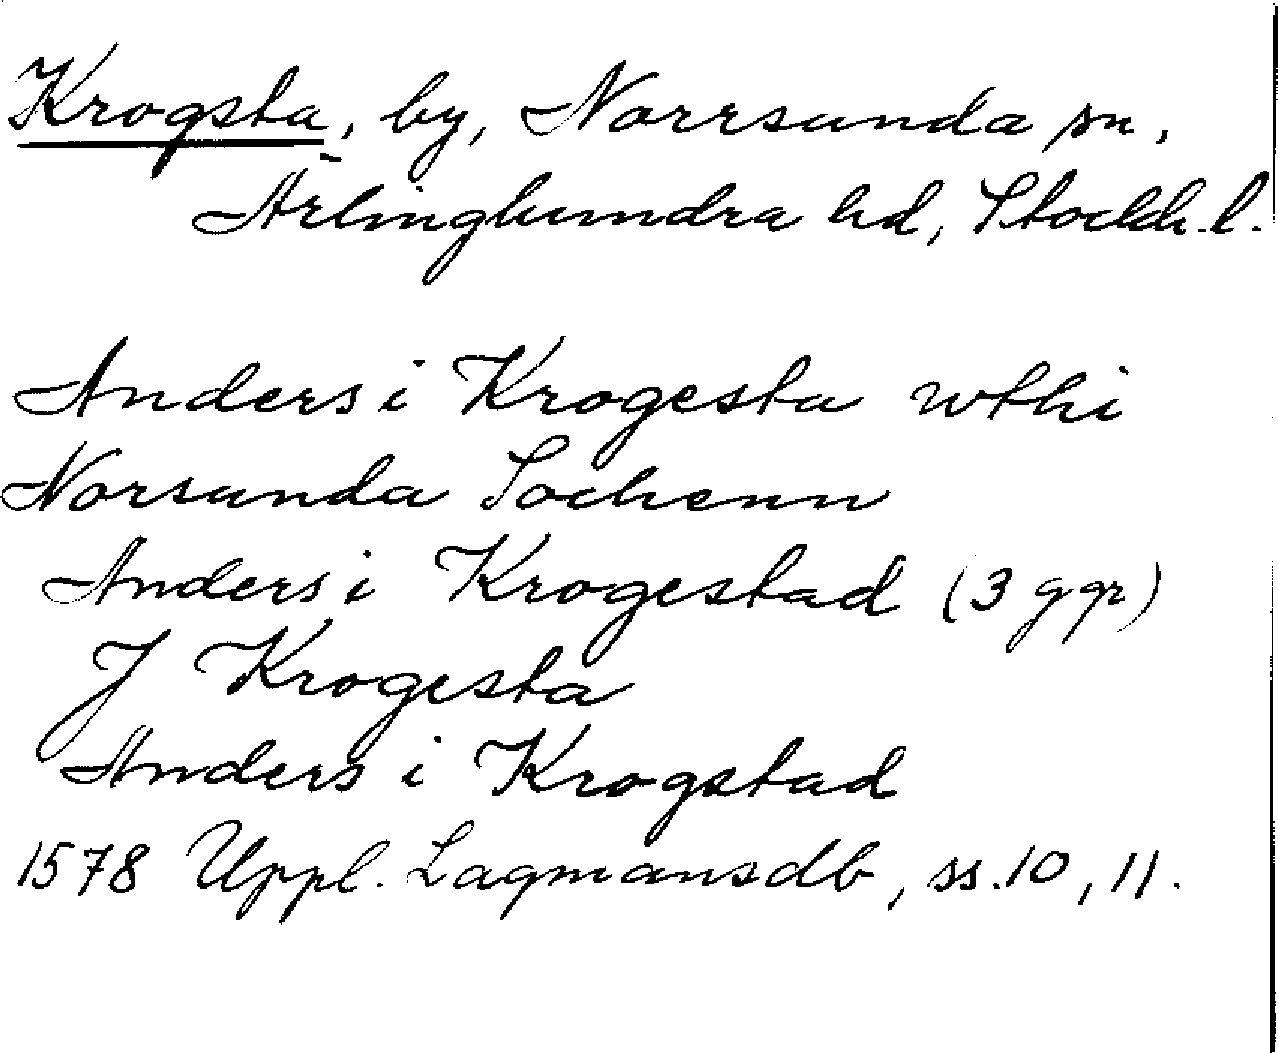 Krogsta, by, Norrsunda sn,
Ärlinghundra hd, Stockh. l.
Anders i Krogesta wthi
Norsunda Sochenn
Anders i Krogestad (3 ggr)
J Krogesta
Anders i Krogstad
1578 Uppl. Lagmansdb, ss. 10, 11.